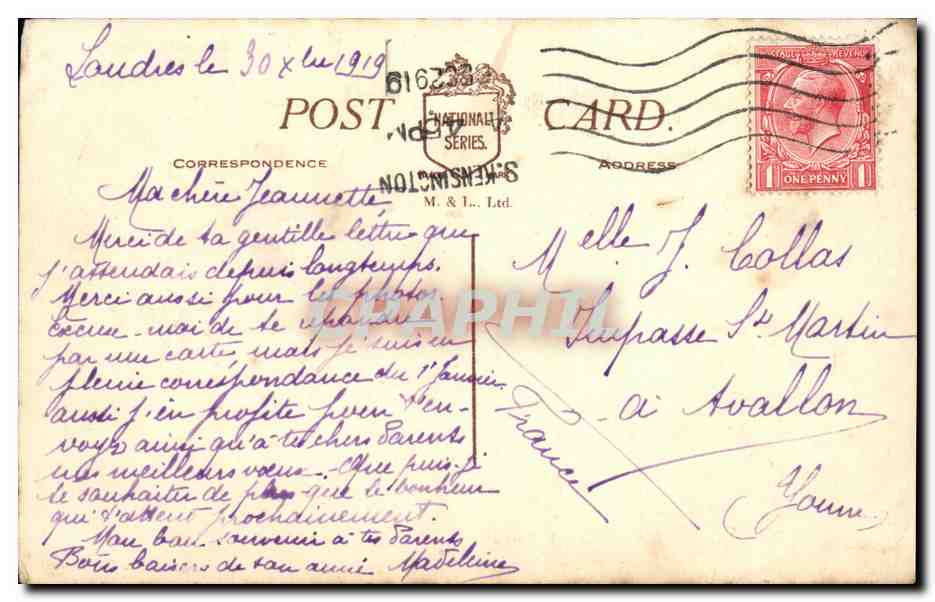 Londres le 30 Xbre 1919
DEC 29 19
4 5 PM
S. KENSINGTON
POST CARD
NATIONAL
SERIES.
CORRESPONDENCE
ADDRESS
M. & L. Ltd.
POSTAGE REVENUE
1 ONE PENNY 1
Ma chère Jeannette,
Merci de ta gentille lettre que
j'attendais depuis longtemps.
Merci aussi pour les photos.
Excuse-moi de te répondre
par une carte, mais je suis en
pleine correspondance du 1er Janvier
aussi j'en profite pour t'en-
voyer ainsi qu'à tes chers Parents
nos meilleurs vœux. - Que puis-je
te souhaiter de plus que le bonheur
qui t'attend prochainement.
Mon bon souvenir à tes Parents
Bons baisers de ton amie Madeleine
Melle J. Collas
Impasse St Martin
à Avallon
(Yonne)
France
CRAPHIL